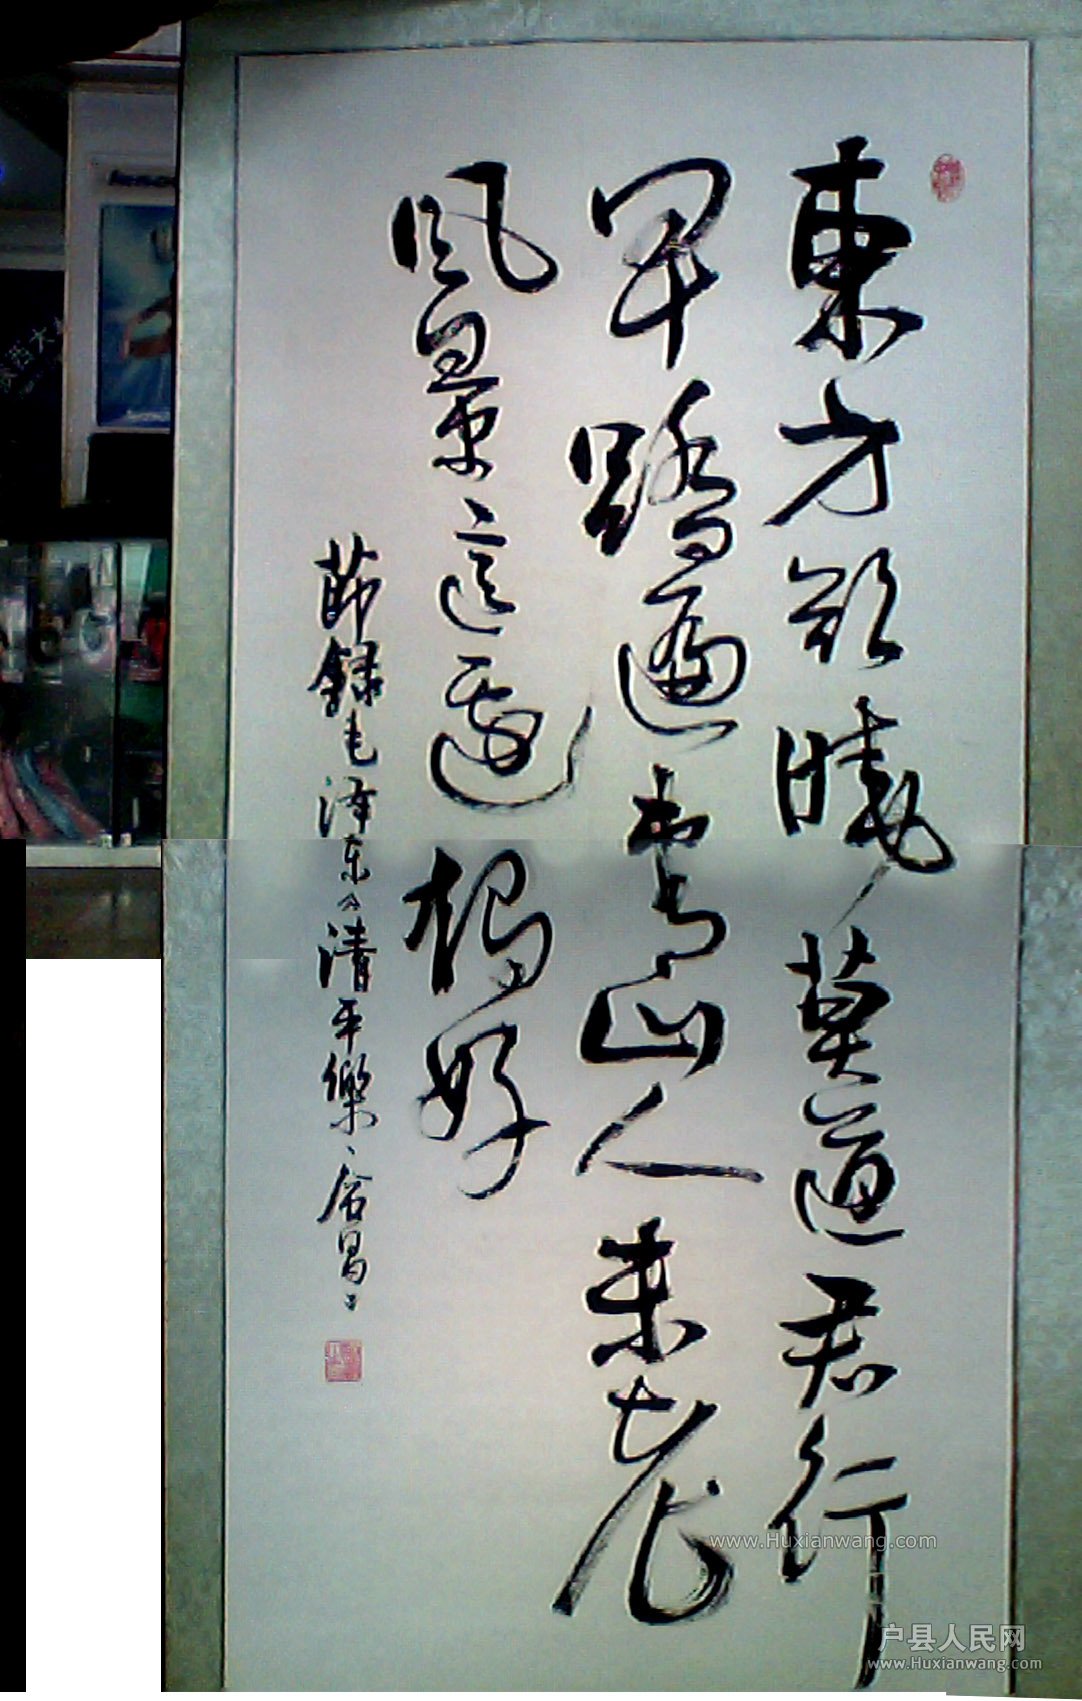 東方欲曉莫道君行
早踏遍青山人未老
風景這邊獨好
節録毛泽东《清平樂、會昌》
www.Huxianwang.com
户县人民网
www.Huxianwang.com